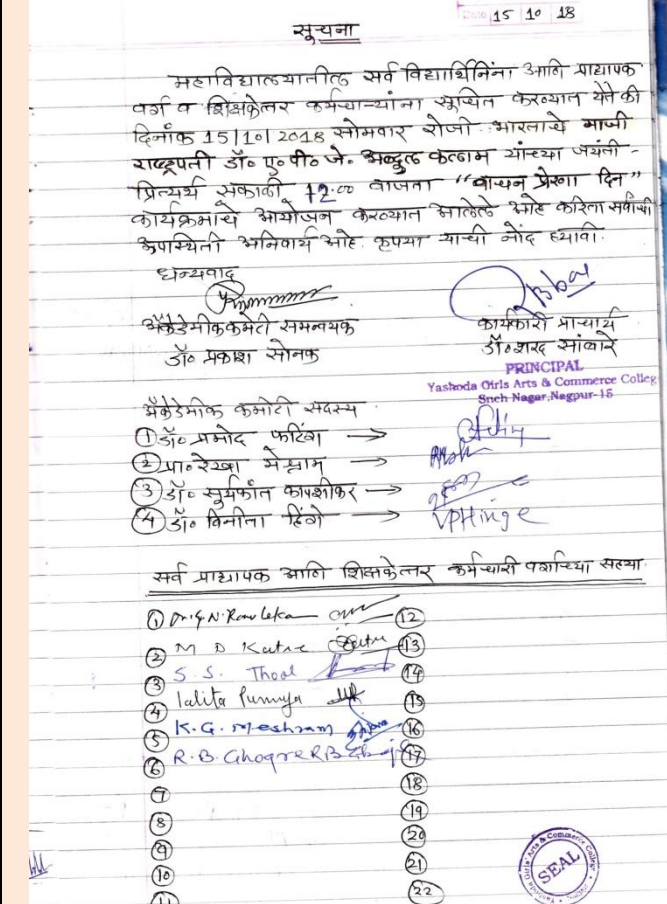 15 10 18
सूचना
महाविद्यालयातील सर्व विद्यार्थिनिंना आणि प्राध्यापक
वर्ग व शिक्षकेत्तर कर्मचाऱ्यांना सूचित करण्यात येते की
दिनांक 15/10/2018 सोमवार रोजी भारताचे माजी
राष्ट्रपती डॉ॰ ए॰ पी॰ जे॰ अब्दुल कलाम यांच्या जयंती-
प्रित्यर्थ सकाळी 12.00 वाजता "वाचन प्रेरणा दिन"
कार्यक्रमाचे आयोजन करण्यात आलेले आहे करिता सर्वांची
उपस्थिती अनिवार्य आहे. कृपया याची नोंद घ्यावी.
धन्यवाद
अॅकेडेमीक कमेटी समन्वयक
डॉ॰ प्रकाश सोनक
कार्यकारी प्राचार्य
डॉ॰ शरद सांबारे
PRINCIPAL
Yashoda Girls Arts & Commerce Colleg
Sneh Nagar, Nagpur-15
अॅकेडेमीक कमेटी सदस्य
① डॉ॰ प्रमोद फटिंग →
② प्रा॰ रेखा मेश्राम →
③ डॉ॰ सूर्यकांत कापशीकर →
④ डॉ॰ विनीता हिंगे → VPHinge
सर्व प्राध्यापक आणि शिक्षकेत्तर कर्मचारी वर्गाच्या सह्या
① ⑫
② M D Katre ⑬
③ S. S. Thool ⑭
④ lalita Punnya ⑮
⑤ K. G. Meshram ⑯
⑥ R. B. Ghogre ⑰
⑦ ⑱
⑧ ⑲
⑨ ⑳
⑩ 21
11 22
Yashoda Girls' Arts & Commerce College
SEAL